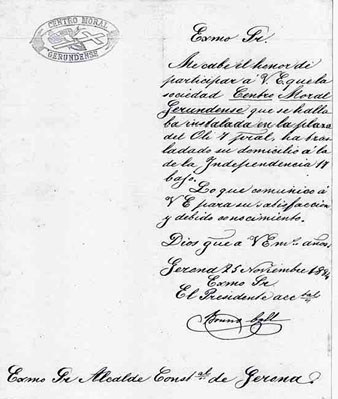 CENTRO MORAL
GERUNDENSE
Exmo Sr.
Me cabe el honor de
participar á V E que la
sociedad Centro Moral
Gerundense que se halla
ba instalada en la plaza
del Oli 7 pral, ha tras
ladado su domicilio á la
de la Independencia 17
bajo.
Lo que comunico á
V E para su satisfacción
y debido conocimiento.
Dios gue á V E ms. años.
Gerona 25 Noviembre 1894
Exmo Sr
El Presidente acctal
Bruno Coll
Exmo Sr Alcalde Constal. de Gerona.